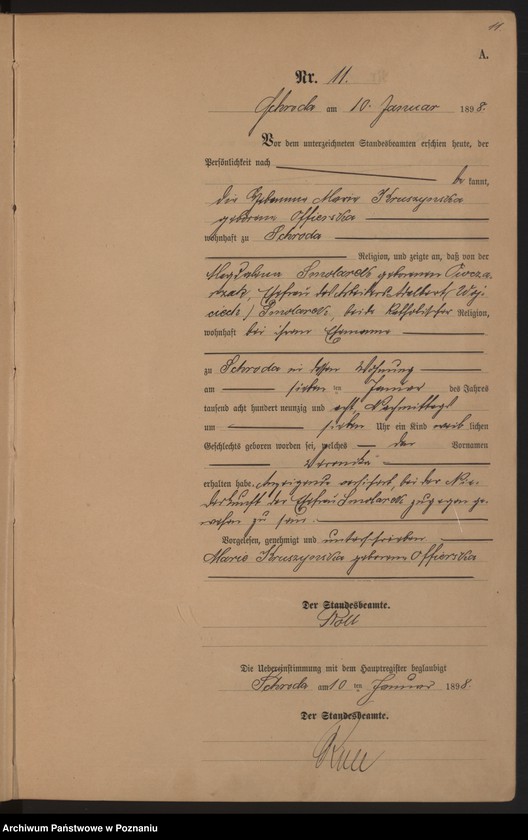 11
A.
Nr. 11.
Schroda am 10. Januar 1898.
Vor dem unterzeichneten Standesbeamten erschien heute, der
Persönlichkeit nach
be kannt,
die Hebamme Maria Kruszynska
geborene Offierska
wohnhaft zu Schroda
Religion, und zeigte an, daß von der
Magdalena Smolarek geborenen
Ehefrau des Arbeiters Adalbert (Woj
ciech) Smolarek, beide katholischer Religion,
wohnhaft bei ihrem Ehemanne
zu Schroda in dessen Wohnung
am sieben ten Januar des Jahres
tausend acht hundert neunzig und acht, Nachmittags
um sieben Uhr ein Kind weib lichen
Geschlechts geboren worden sei, welches den Vornamen
Veronika
erhalten habe. Anzeigende versichert, bei der Nie-
derkunft der Ehefrau Smolarek zugegen ge-
wesen zu sein.
Vorgelesen, genehmigt und unterschrieben
Maria Kruszynska geborene Offierska
Der Standesbeamte.
Roll
Die Uebereinstimmung mit dem Hauptregister beglaubigt
Schroda am 10 ten Januar 1898.
Der Standesbeamte.
Roll
Archiwum Państwowe w Poznaniu